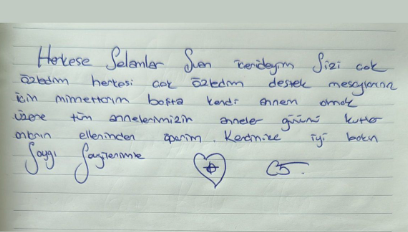 Herkese Selamlar Ben icerideyim Sizi cok
özledim herkesi cok özledim destek mesajlarınız
icin minnettarım başta kendi annem olmak
üzere tüm annelerimizin anneler gününü kutlar
onların ellerinden öperim. Kendinize iyi bakın
Saygı Sevgilerimle